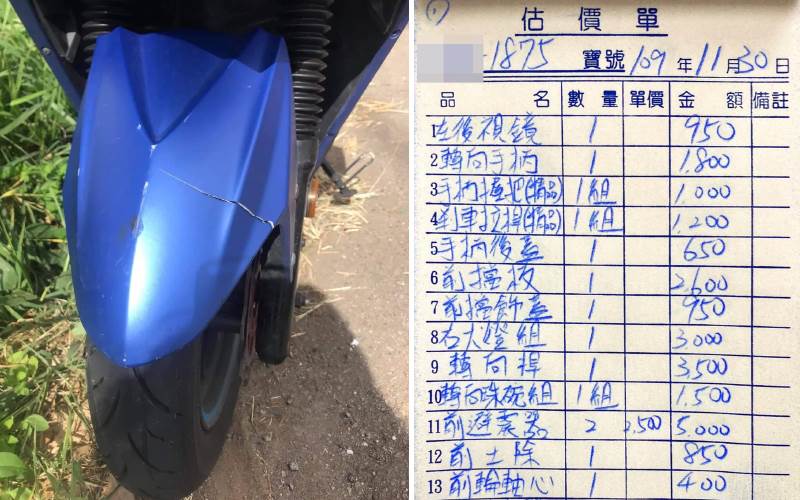 1
估價單
-1875 寶號 109年11月30日
品名 數量 單價 金額 備註
1 左後視鏡 1 950
2 轉向手柄 1 1.800
3 手柄握把(精品) 1組 1.000
4 剎車拉桿(精品) 1組 1.200
5 手柄後蓋 1 650
6 前擋板 1 2.600
7 前擋飾蓋 1 950
8 右大燈組 1 3.000
9 轉向桿 1 3.500
10 轉向珠碗組 1組 1.500
11 前避震器 2 2.500 5.000
12 前土除 1 850
13 前輪軸心 1 400